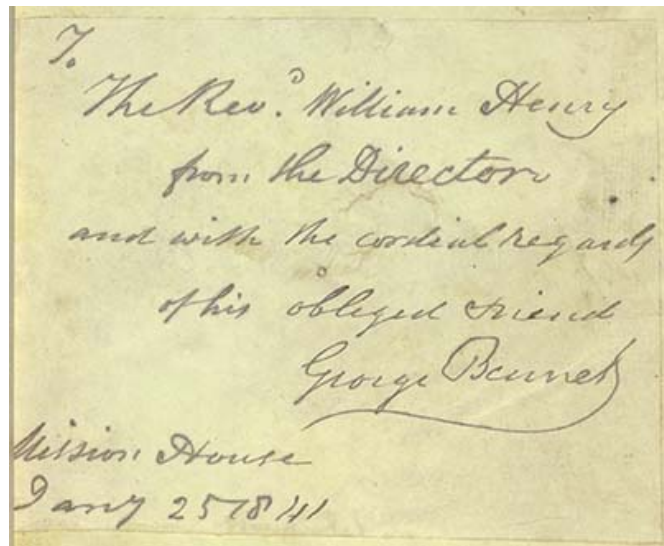 To
The Revd. William Henry
from the Directors
and with the cordial regards
of his obliged Friend
George Bennet
Mission House
Jany 25 1841